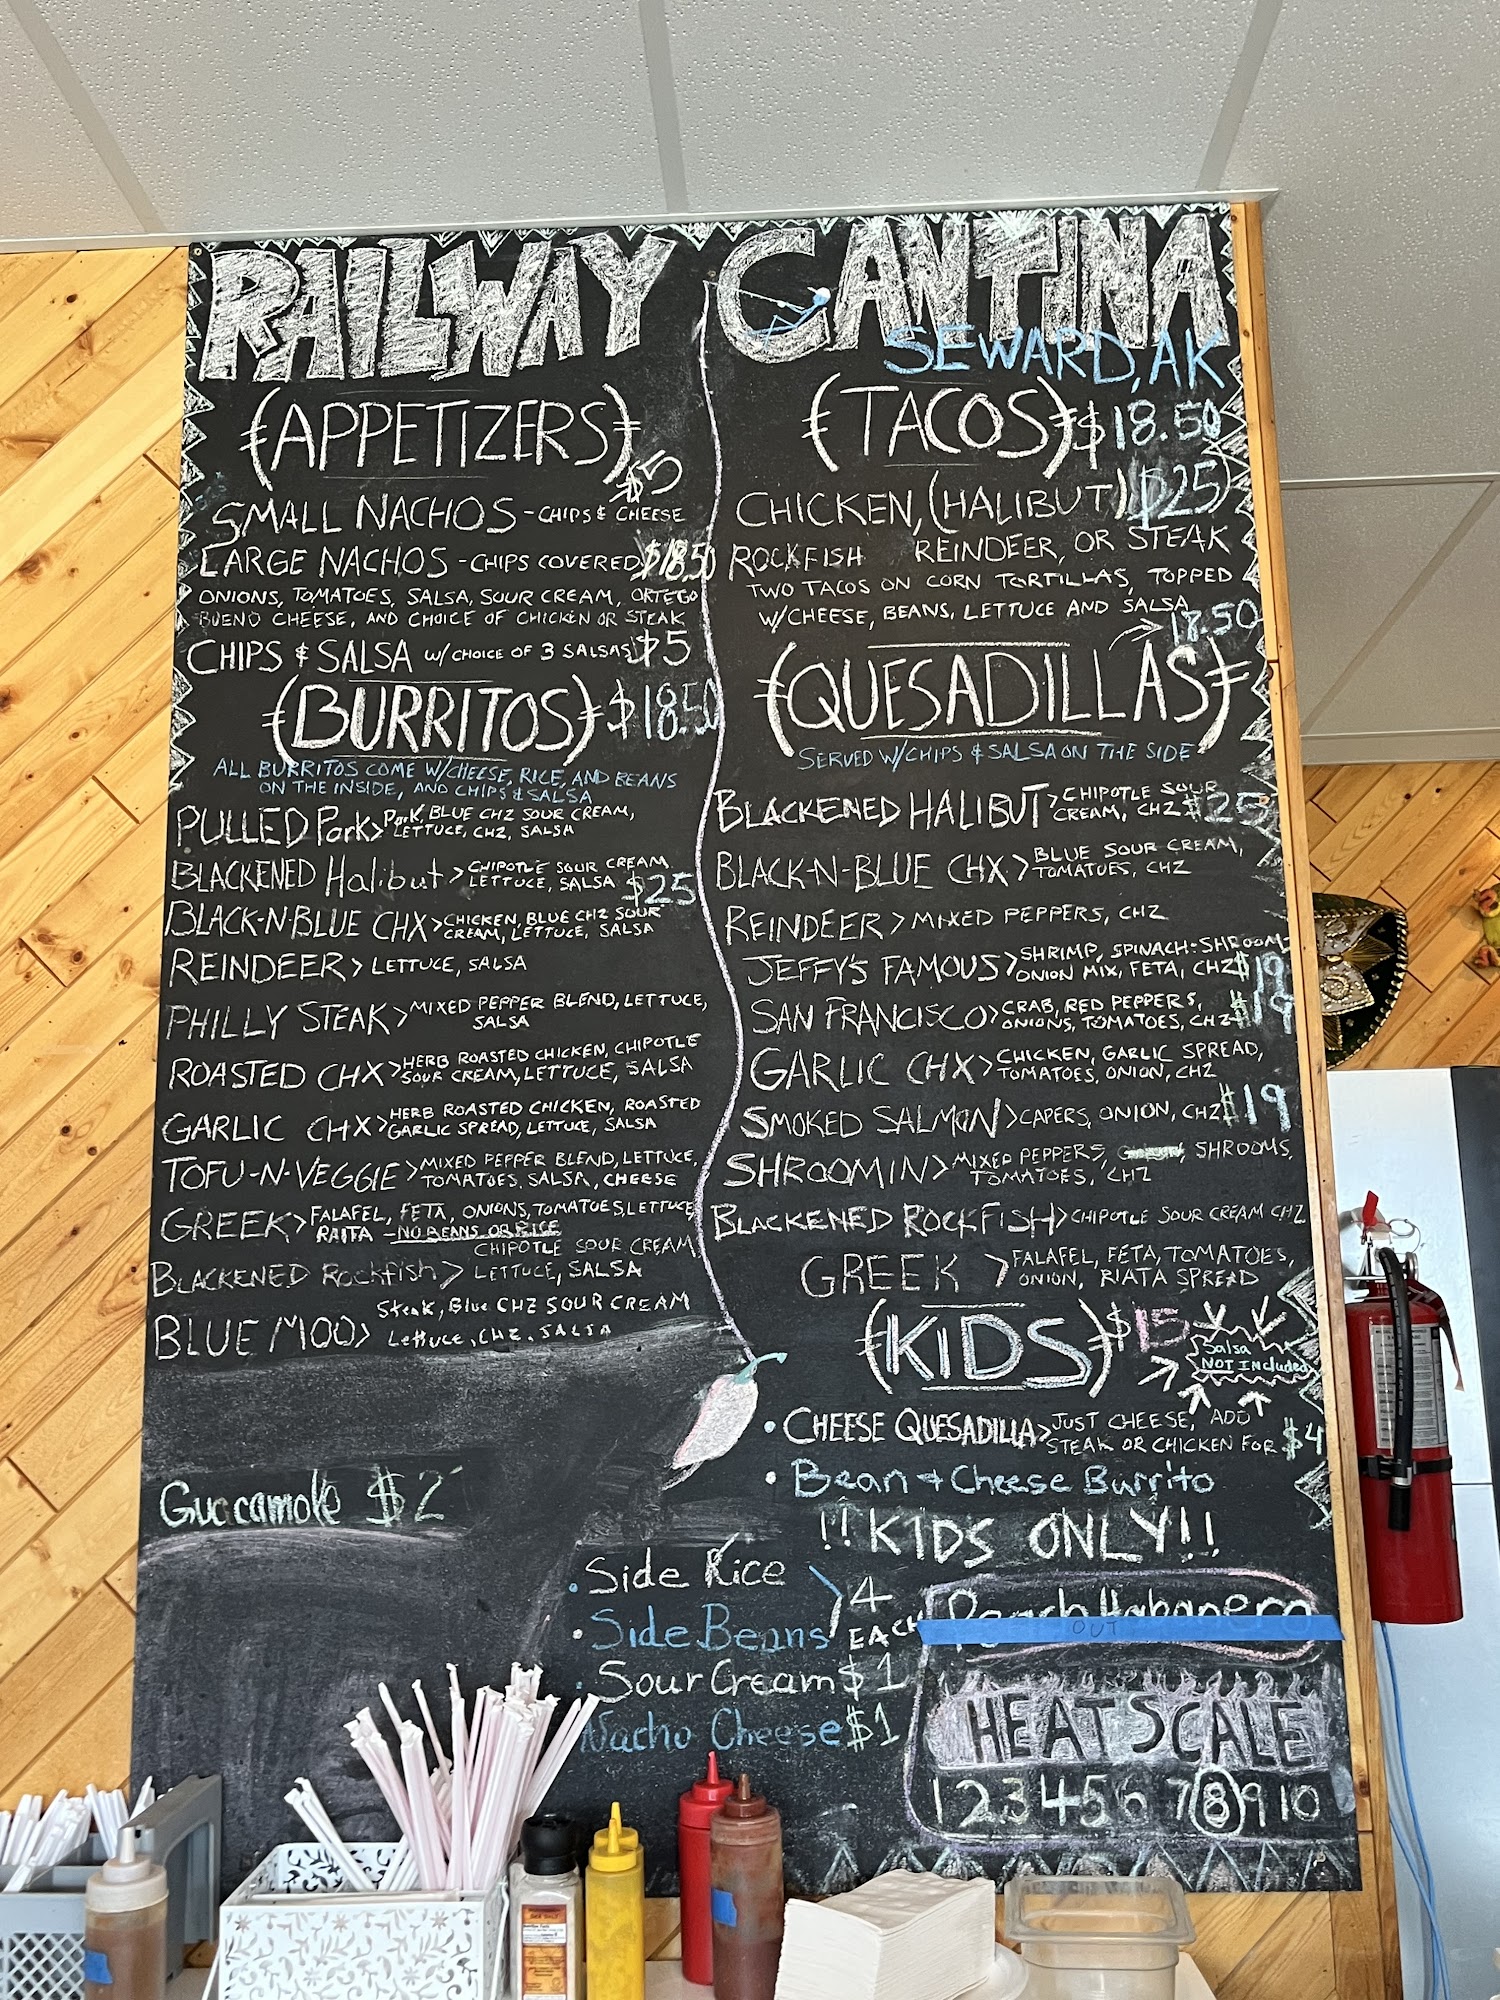 RAILWAY CANTINA
SEWARD, AK
(APPETIZERS)
$5
SMALL NACHOS - CHIPS & CHEESE
LARGE NACHOS - CHIPS COVERED $18.50
ONIONS, TOMATOES, SALSA, SOUR CREAM, ORTEGO
BUENO CHEESE, AND CHOICE OF CHICKEN OR STEAK
CHIPS & SALSA W/ CHOICE OF 3 SALSAS $5
(BURRITOS) $18.50
ALL BURRITOS COME W/CHEESE, RICE, AND BEANS
ON THE INSIDE, AND CHIPS & SALSA
PULLED Pork> Pork, BLUE CHZ SOUR CREAM,
LETTUCE, CHZ, SALSA
BLACKENED Halibut > CHIPOTLE SOUR CREAM
LETTUCE, SALSA $25
BLACK-N-BLUE CHX> CHICKEN, BLUE CHZ SOUR
CREAM, LETTUCE, SALSA
REINDEER > LETTUCE, SALSA
PHILLY STEAK> MIXED PEPPER BLEND, LETTUCE,
SALSA
ROASTED CHX> HERB ROASTED CHICKEN, CHIPOTLE
SOUR CREAM, LETTUCE, SALSA
GARLIC CHX> HERB ROASTED CHICKEN, ROASTED
GARLIC SPREAD, LETTUCE, SALSA
TOFU-N-VEGGIE> MIXED PEPPER BLEND, LETTUCE,
TOMATOES, SALSA, CHEESE
GREEK> FALAFEL, FETA, ONIONS, TOMATOES, LETTUCE
RAITA - NO BEANS OR RICE
BLACKENED Rockfish> CHIPOTLE SOUR CREAM,
LETTUCE, SALSA
BLUE MOO> Steak, Blue CHZ SOUR CREAM
Lettuce, CHZ, SALSA
Guacamole $2
(TACOS) $18.50
CHICKEN, (HALIBUT) $25)
ROCKFISH REINDEER, OR STEAK
TWO TACOS ON CORN TORTILLAS, TOPPED
W/CHEESE, BEANS, LETTUCE AND SALSA
18.50
(QUESADILLAS)
SERVED W/CHIPS & SALSA ON THE SIDE
BLACKENED HALIBUT> CHIPOTLE SOUR
CREAM, CHZ $25
BLACK-N-BLUE CHX> BLUE SOUR CREAM,
TOMATOES, CHZ
REINDEER> MIXED PEPPERS, CHZ
JEFFY'S FAMOUS> SHRIMP, SPINACH-SHROOM-
ONION MIX, FETA, CHZ $19
SAN FRANCISCO> CRAB, RED PEPPERS,
ONIONS, TOMATOES, CHZ $19
GARLIC CHX> CHICKEN, GARLIC SPREAD,
TOMATOES, ONION, CHZ
SMOKED SALMON> CAPERS, ONION, CHZ $19
SHROOMIN> MIXED PEPPERS, SHROOMS,
TOMATOES, CHZ
BLACKENED ROCKFISH> CHIPOTLE SOUR CREAM CHZ
GREEK > FALAFEL, FETA, TOMATOES,
ONION, RIATA SPREAD
(KIDS) $15
Salsa
NOT INCluded
• CHEESE QUESADILLA> JUST CHEESE, ADD
STEAK OR CHICKEN FOR $4
• Bean + Cheese Burrito
!!KIDS ONLY!!
• Side Rice
• Side Beans
4
EACH
• Sour Cream $1
Nacho Cheese $1
Peach Habanero
OUT
HEAT SCALE
1 2 3 4 5 6 7 8 9 10